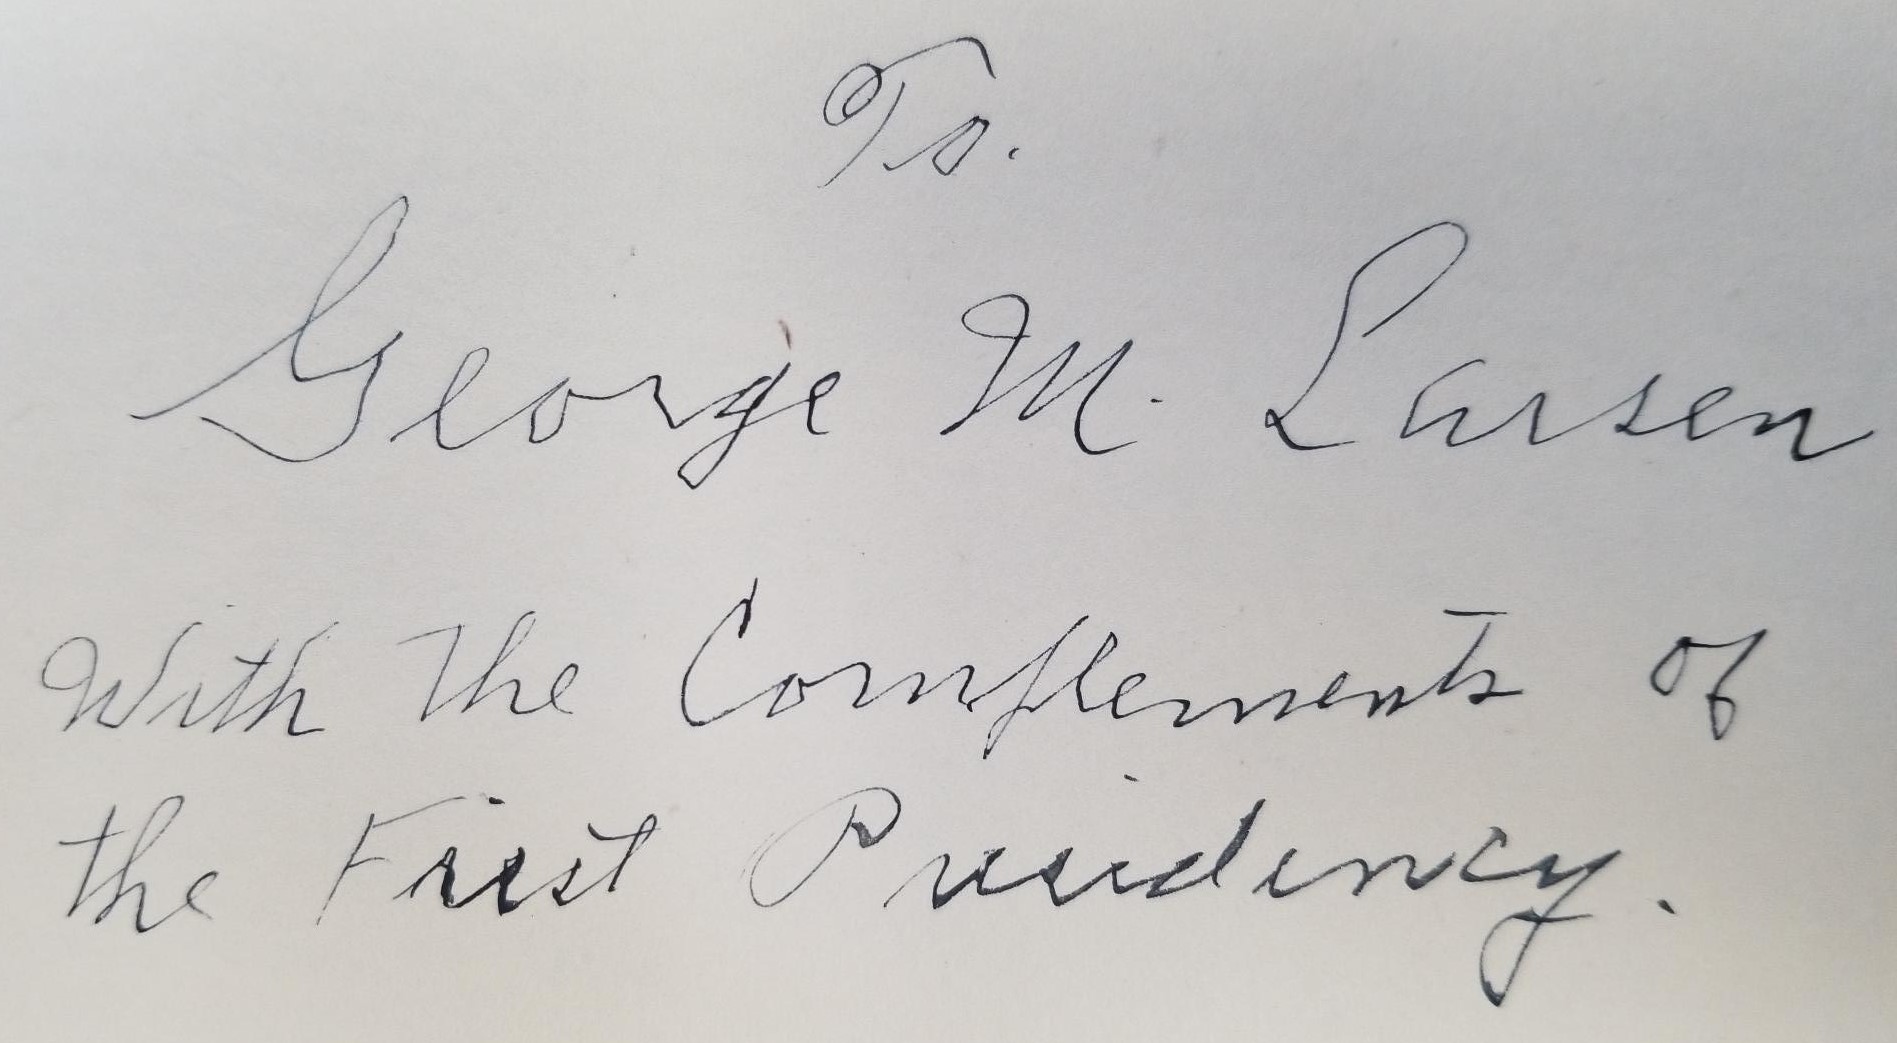 To.
George M. Larsen
With The Complements of
the First Presidency.